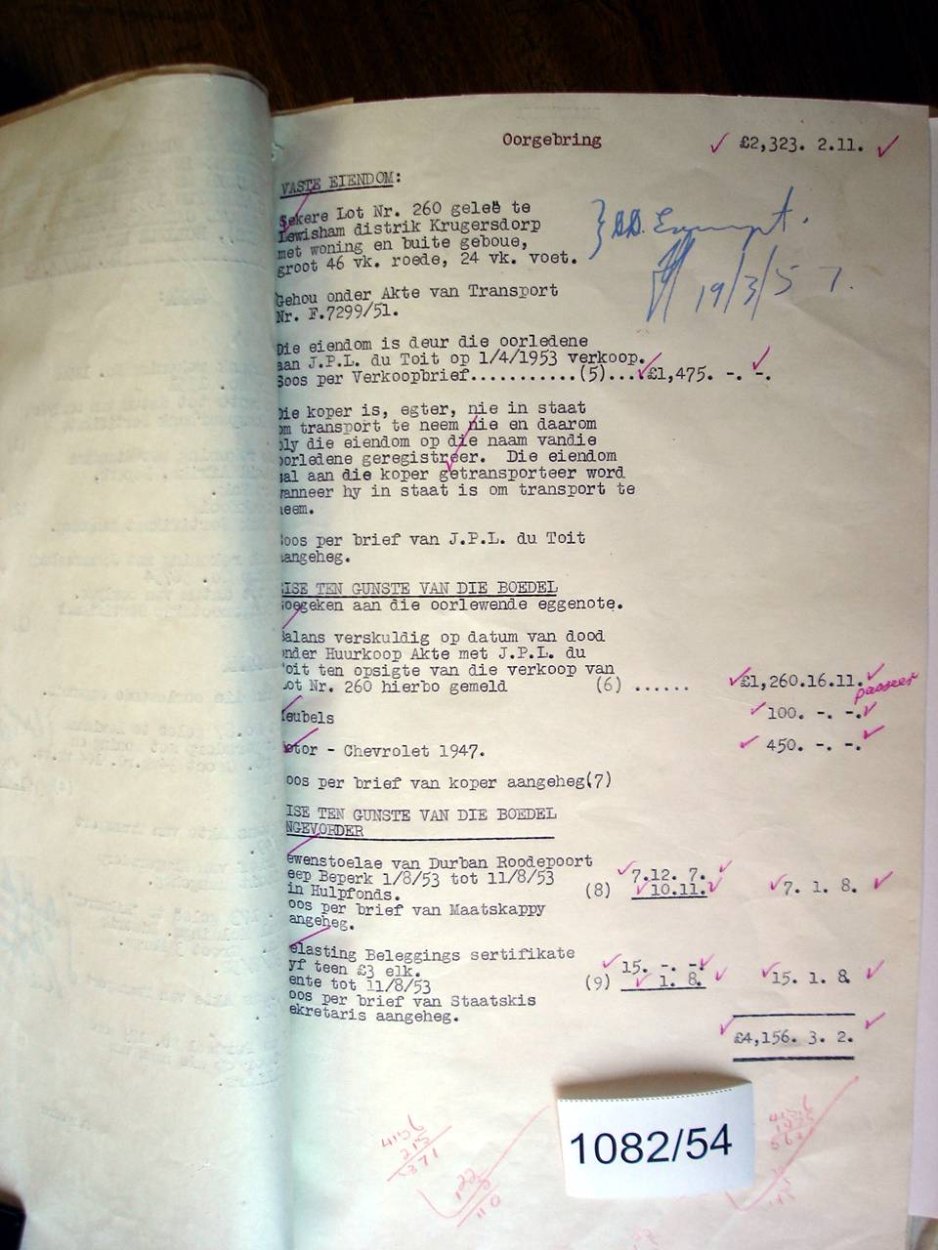 Oorgebring £2,323. 2.11.
VASTE EIENDOM:
Sekere Lot Nr. 260 geleë te
Lewisham distrik Krugersdorp
met woning en buite geboue,
groot 46 vk. roede, 24 vk. voet.
19/3/57.
Gehou onder Akte van Transport
Nr. F.7299/51.
Die eiendom is deur die oorledene
aan J.P.L. du Toit op 1/4/1953 verkoop.
Soos per Verkoopbrief...........(5)....£1,475. -. -.
Die koper is, egter, nie in staat
om transport te neem nie en daarom
bly die eiendom op die naam vandie
oorledene geregistreer. Die eiendom
sal aan die koper getransporteer word
wanneer hy in staat is om transport te
neem.
Soos per brief van J.P.L. du Toit
aangeheg.
EISE TEN GUNSTE VAN DIE BOEDEL
toegeken aan die oorlewende eggenote.
Balans verskuldig op datum van dood
onder Huurkoop Akte met J.P.L. du
Toit ten opsigte van die verkoop van
Lot Nr. 260 hierbo gemeld (6) ...... £1,260.16.11.
Meubels 100. -. -.
Motor - Chevrolet 1947. 450. -. -.
oos per brief van koper aangeheg(7)
ISE TEN GUNSTE VAN DIE BOEDEL
NGEVORDER
ewenstoelae van Durban Roodepoort
eep Beperk 1/8/53 tot 11/8/53 7.12. 7.
in Hulpfonds. (8) 10.11. 7. 1. 8.
oos per brief van Maatskappy
angeheg.
elasting Beleggings sertifikate
yf teen £3 elk. 15. -. -.
ente tot 11/8/53 (9) 1. 8. 15. 1. 8.
oos per brief van Staatskis
ekretaris aangeheg.
£4,156. 3. 2.
4156
1082/54